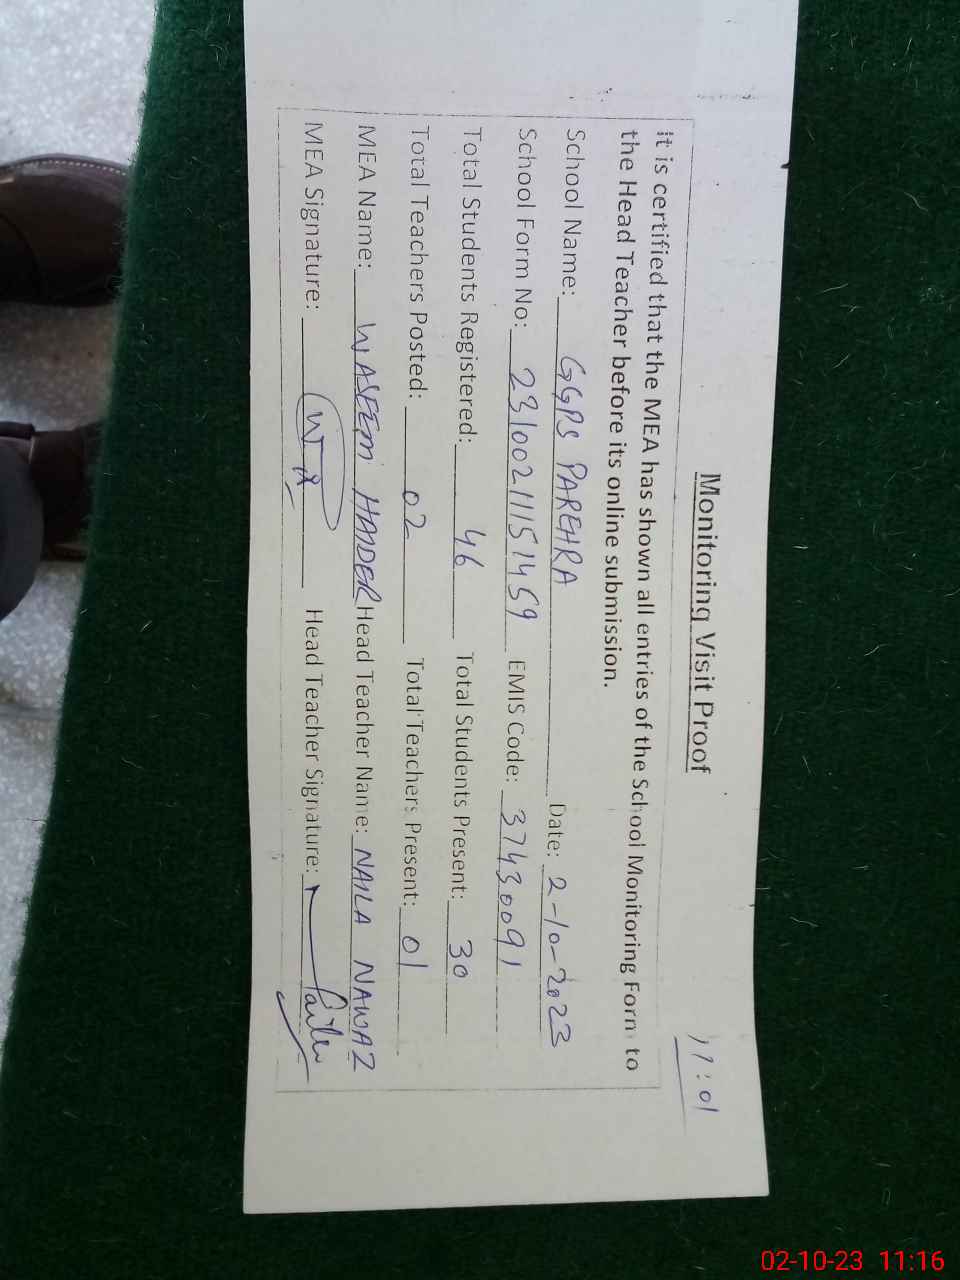 11:01
Monitoring Visit Proof
it is certified that the MEA has shown all entries of the School Monitoring Form to
the Head Teacher before its online submission.
School Name: GGPS PAREHRA Date: 2-10-2023
School Form No: 23100211151459 EMIS Code: 37430091
Total Students Registered: 46 Total Students Present: 30
Total Teachers Posted: 02 Total Teachers Present: 01
MEA Name: WASEEM HAIDER Head Teacher Name: NAILA NAWAZ
MEA Signature: Head Teacher Signature:
02-10-23 11:16